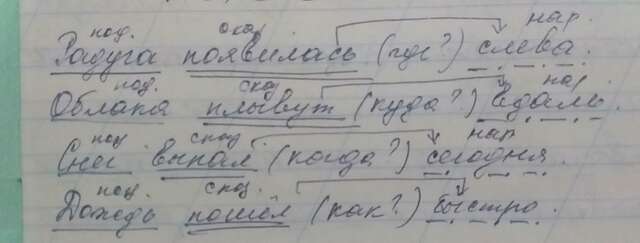 под. ска. нар.
Радуга появилась (где?) слева.
под. ска. нар
Облака плывут (куда?) вдаль.
под сказ. нар
Снег выпал (когда?) сегодня.
под. сказ.
Дождь пошёл (как?) быстро.